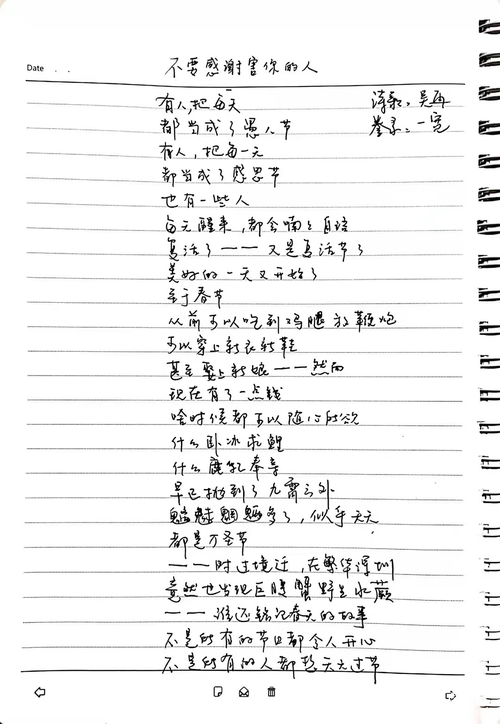 Date . .
不要感谢害你的人
有人,把每天
诗歌:吴再
都当成了愚人节
抄录:一宽
有人,把每一天
都当成了感恩节
也有一些人
每天醒来,都会喃喃自语
复活了——又是复活节了
美好的一天又开始了
至于春节
从前可以吃到鸡腿 放鞭炮
可以穿上新衣新鞋
甚至娶上新娘——然而
现在有了一点钱
啥时候都可以随心所欲
什么卧冰求鲤
什么鹿乳奉亲
早已抛到了九霄云外
魑魅魍魉多了,似乎天天
都是万圣节
——时过境迁,在繁华深圳
竟然也发现巨型蟹 野生水蕨
——谁还铭记春天的故事
不是所有的节日都令人开心
不是所有的人都愁天天过节